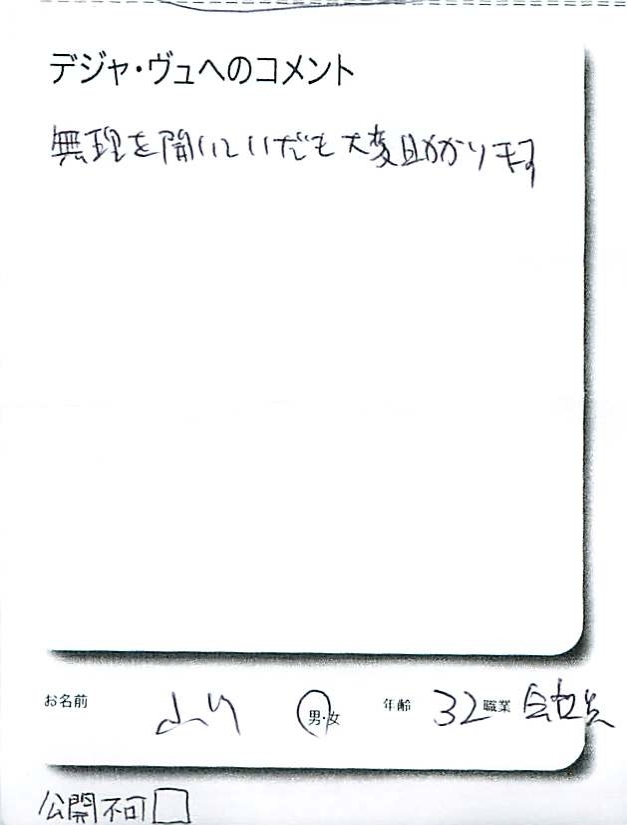 デジャ・ヴュへのコメント
無理を聞いていだも大変助かります
お名前 男・女 年齢 32 職業 会社員
公開不可□